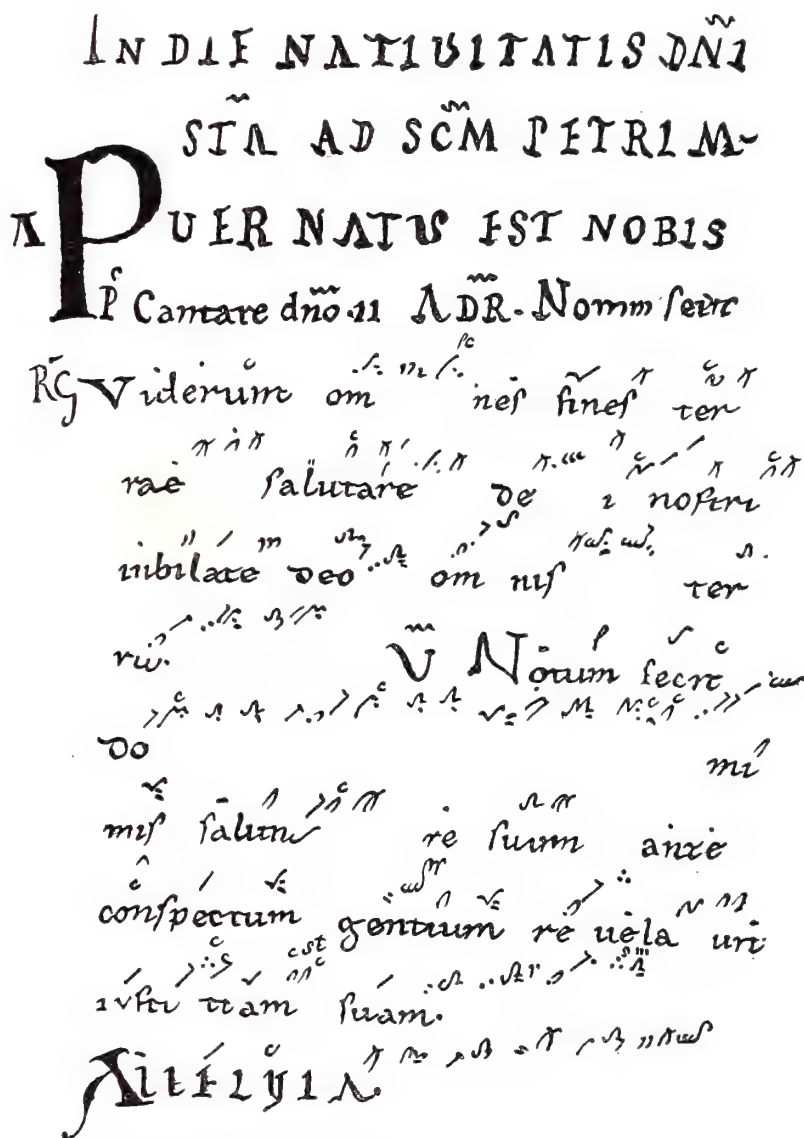 IN DIE NATIUITATIS DÑI
STÃ AD SC̃M PETRI M~
A PUER NATUS EST NOBIS
P̃ Cantate dño .II ADR̃. Notum fecit
RG̃ Viderunt om nes fines ter
rae salutare de i nostri
iubilate deo om nis ter
ra.   Ṽ Notum fecit
do   mi
nus salutare re suum ante
conspectum gentium re uela uit
iusti tiam suam.
Alleluia